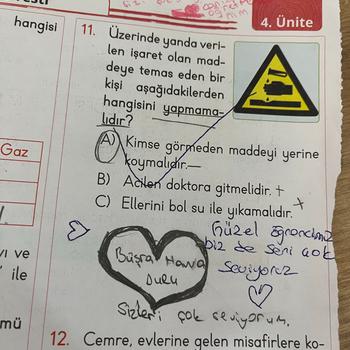 4. Ünite
hangisi
11. Üzerinde yanda veri-
len işaret olan mad-
deye temas eden bir
kişi aşağıdakilerden
hangisini yapmama-
lıdır?
A) Kimse görmeden maddeyi yerine
koymalıdır.
B) Acilen doktora gitmelidir. +
C) Ellerini bol su ile yıkamalıdır. x
Gaz
Güzel öğrencimiz
biz de seni çok
seviyoruz
Büşra Havva
Duru
Sizleri çok seviyorum.
vı ve
ile
mü
12. Cemre, evlerine gelen misafirlere ko-